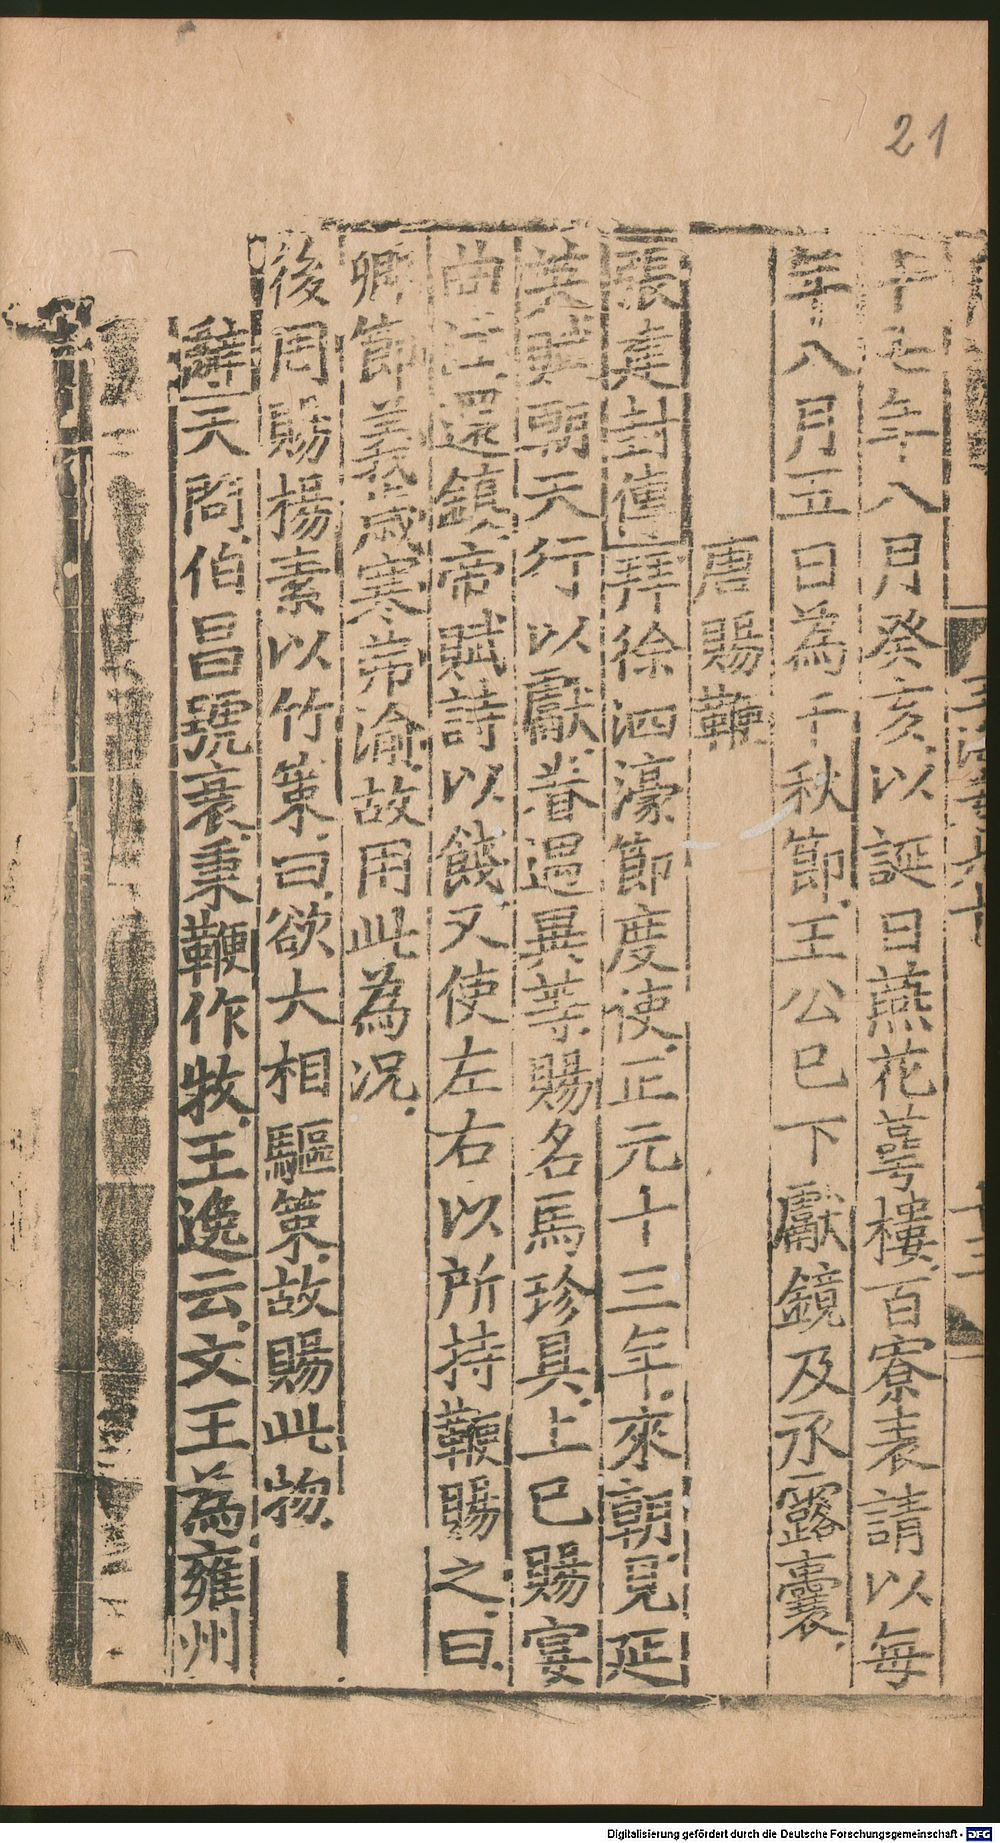 21
十七年八月癸亥以誕日燕花萼樓百寮表請以每
年八月五日為千秋節王公已下獻鏡及承露囊
唐賜鞭
張建封傳拜徐泗濠節度使正元十三年來朝見延
英賦朝天行以獻眷遇異等賜名馬珍具上巳賜宴
曲江還鎮帝賦詩以餞又使左右以所持鞭賜之曰
卿節義歲寒弗渝故用此為况
後周賜楊素以竹策曰欲大相驅策故賜此物
辭天問伯昌號衰秉鞭作牧王逸云文王為雍州
Digitalisierung gefördert durch die Deutsche Forschungsgemeinschaft - DFG